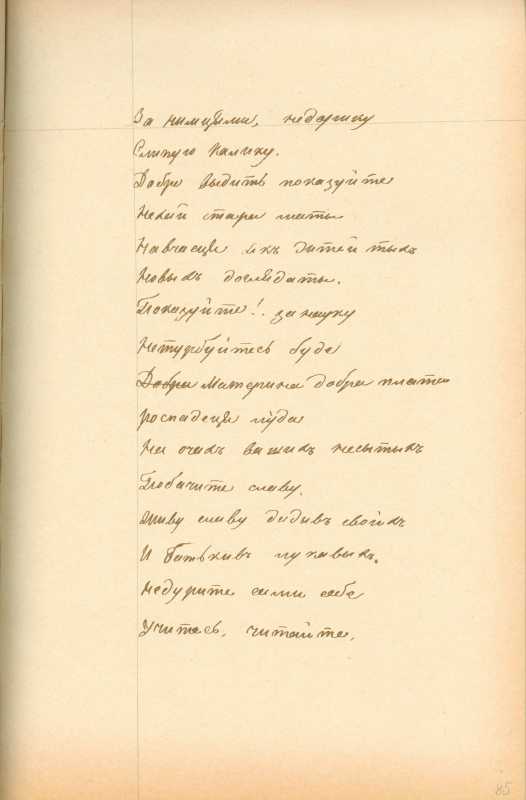 За німцями, недоріку
Слипую Калику.
Добре выдить показуйте
Нехай стара маты
Навчаеця якъ дитей тыхъ
Новыхъ доглядаты.
Показуйте!. за науку
Нетурбуйтесь буде
Добра Материна добра плата
роспадеця луда
На очахъ вашихъ неситыхъ
Побачите славу.
Живу славу дидивъ своихъ
И Батькивъ лукавыхъ.
Недурите сами себе
Учитесь. читайте,
85